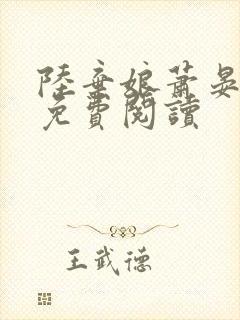 陸棄娘蕭晏
免費閱讀
王武德